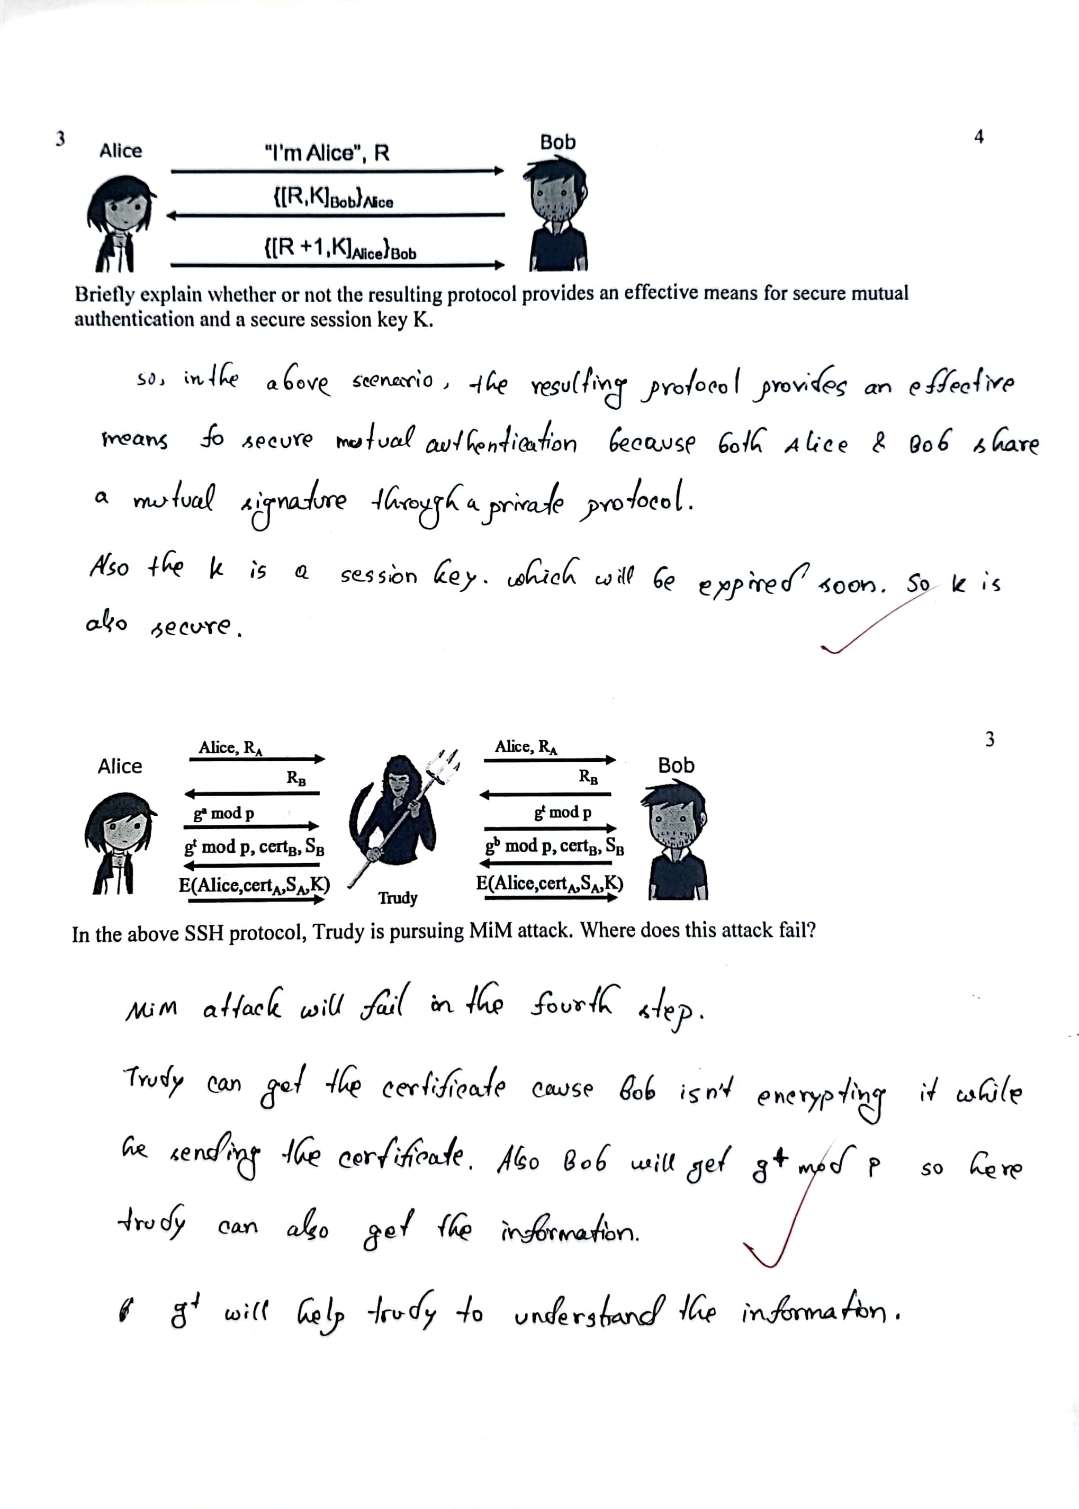 3
4
Alice
"I'm Alice", R
Bob
{[R,K]Bob}Alice
{[R +1,K]Alice}Bob
Briefly explain whether or not the resulting protocol provides an effective means for secure mutual
authentication and a secure session key K.
so, in the above scenario, the resulting protocol provides an effective
means fo secure mutual authentication because both Alice & Bob share
a mutual signature through a private protocol.
Also the k is a session key. which will be expired soon. So k is
also secure.
3
Alice, RA
Alice, RA
Alice
Bob
RB
RB
gª mod p
gᵗ mod p
gᵗ mod p, certB, SB
gᵇ mod p, certB, SB
E(Alice,certA,SA,K)
E(Alice,certA,SA,K)
Trudy
In the above SSH protocol, Trudy is pursuing MiM attack. Where does this attack fail?
MiM attack will fail in the fourth step.
Trudy can get the certificate cause Bob isn't encrypting it while
he sending the certificate. Also Bob will get gᵗ mod p so here
trudy can also get the information.
gᵗ will help trudy to understand the information.